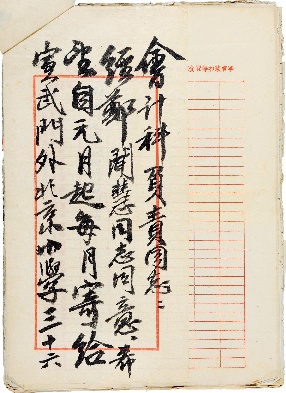 會计科負責同志：
經鄭聞慧同志同意、希
您自元月起每月寄给
宣武門外北京小學三十六